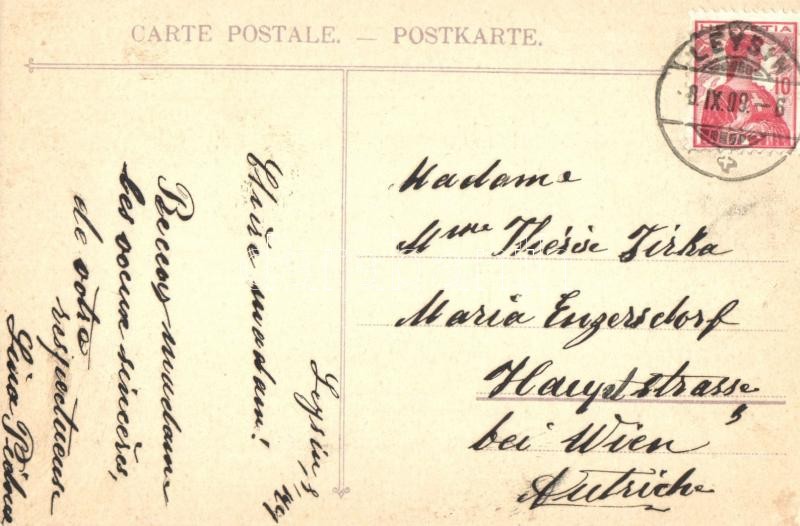 CARTE POSTALE. — POSTKARTE.
HELVETIA
10
LEYSIN
8.IX.09.-6
Leysin, 8/IX
Chère madam!
Recevez madame
les voeux sincères,
de votre
respectueuse
Lina
Madame
Mme Thérèse Zirka
Maria Enzersdorf
Hauptstrasse
bei Wien
Autriche